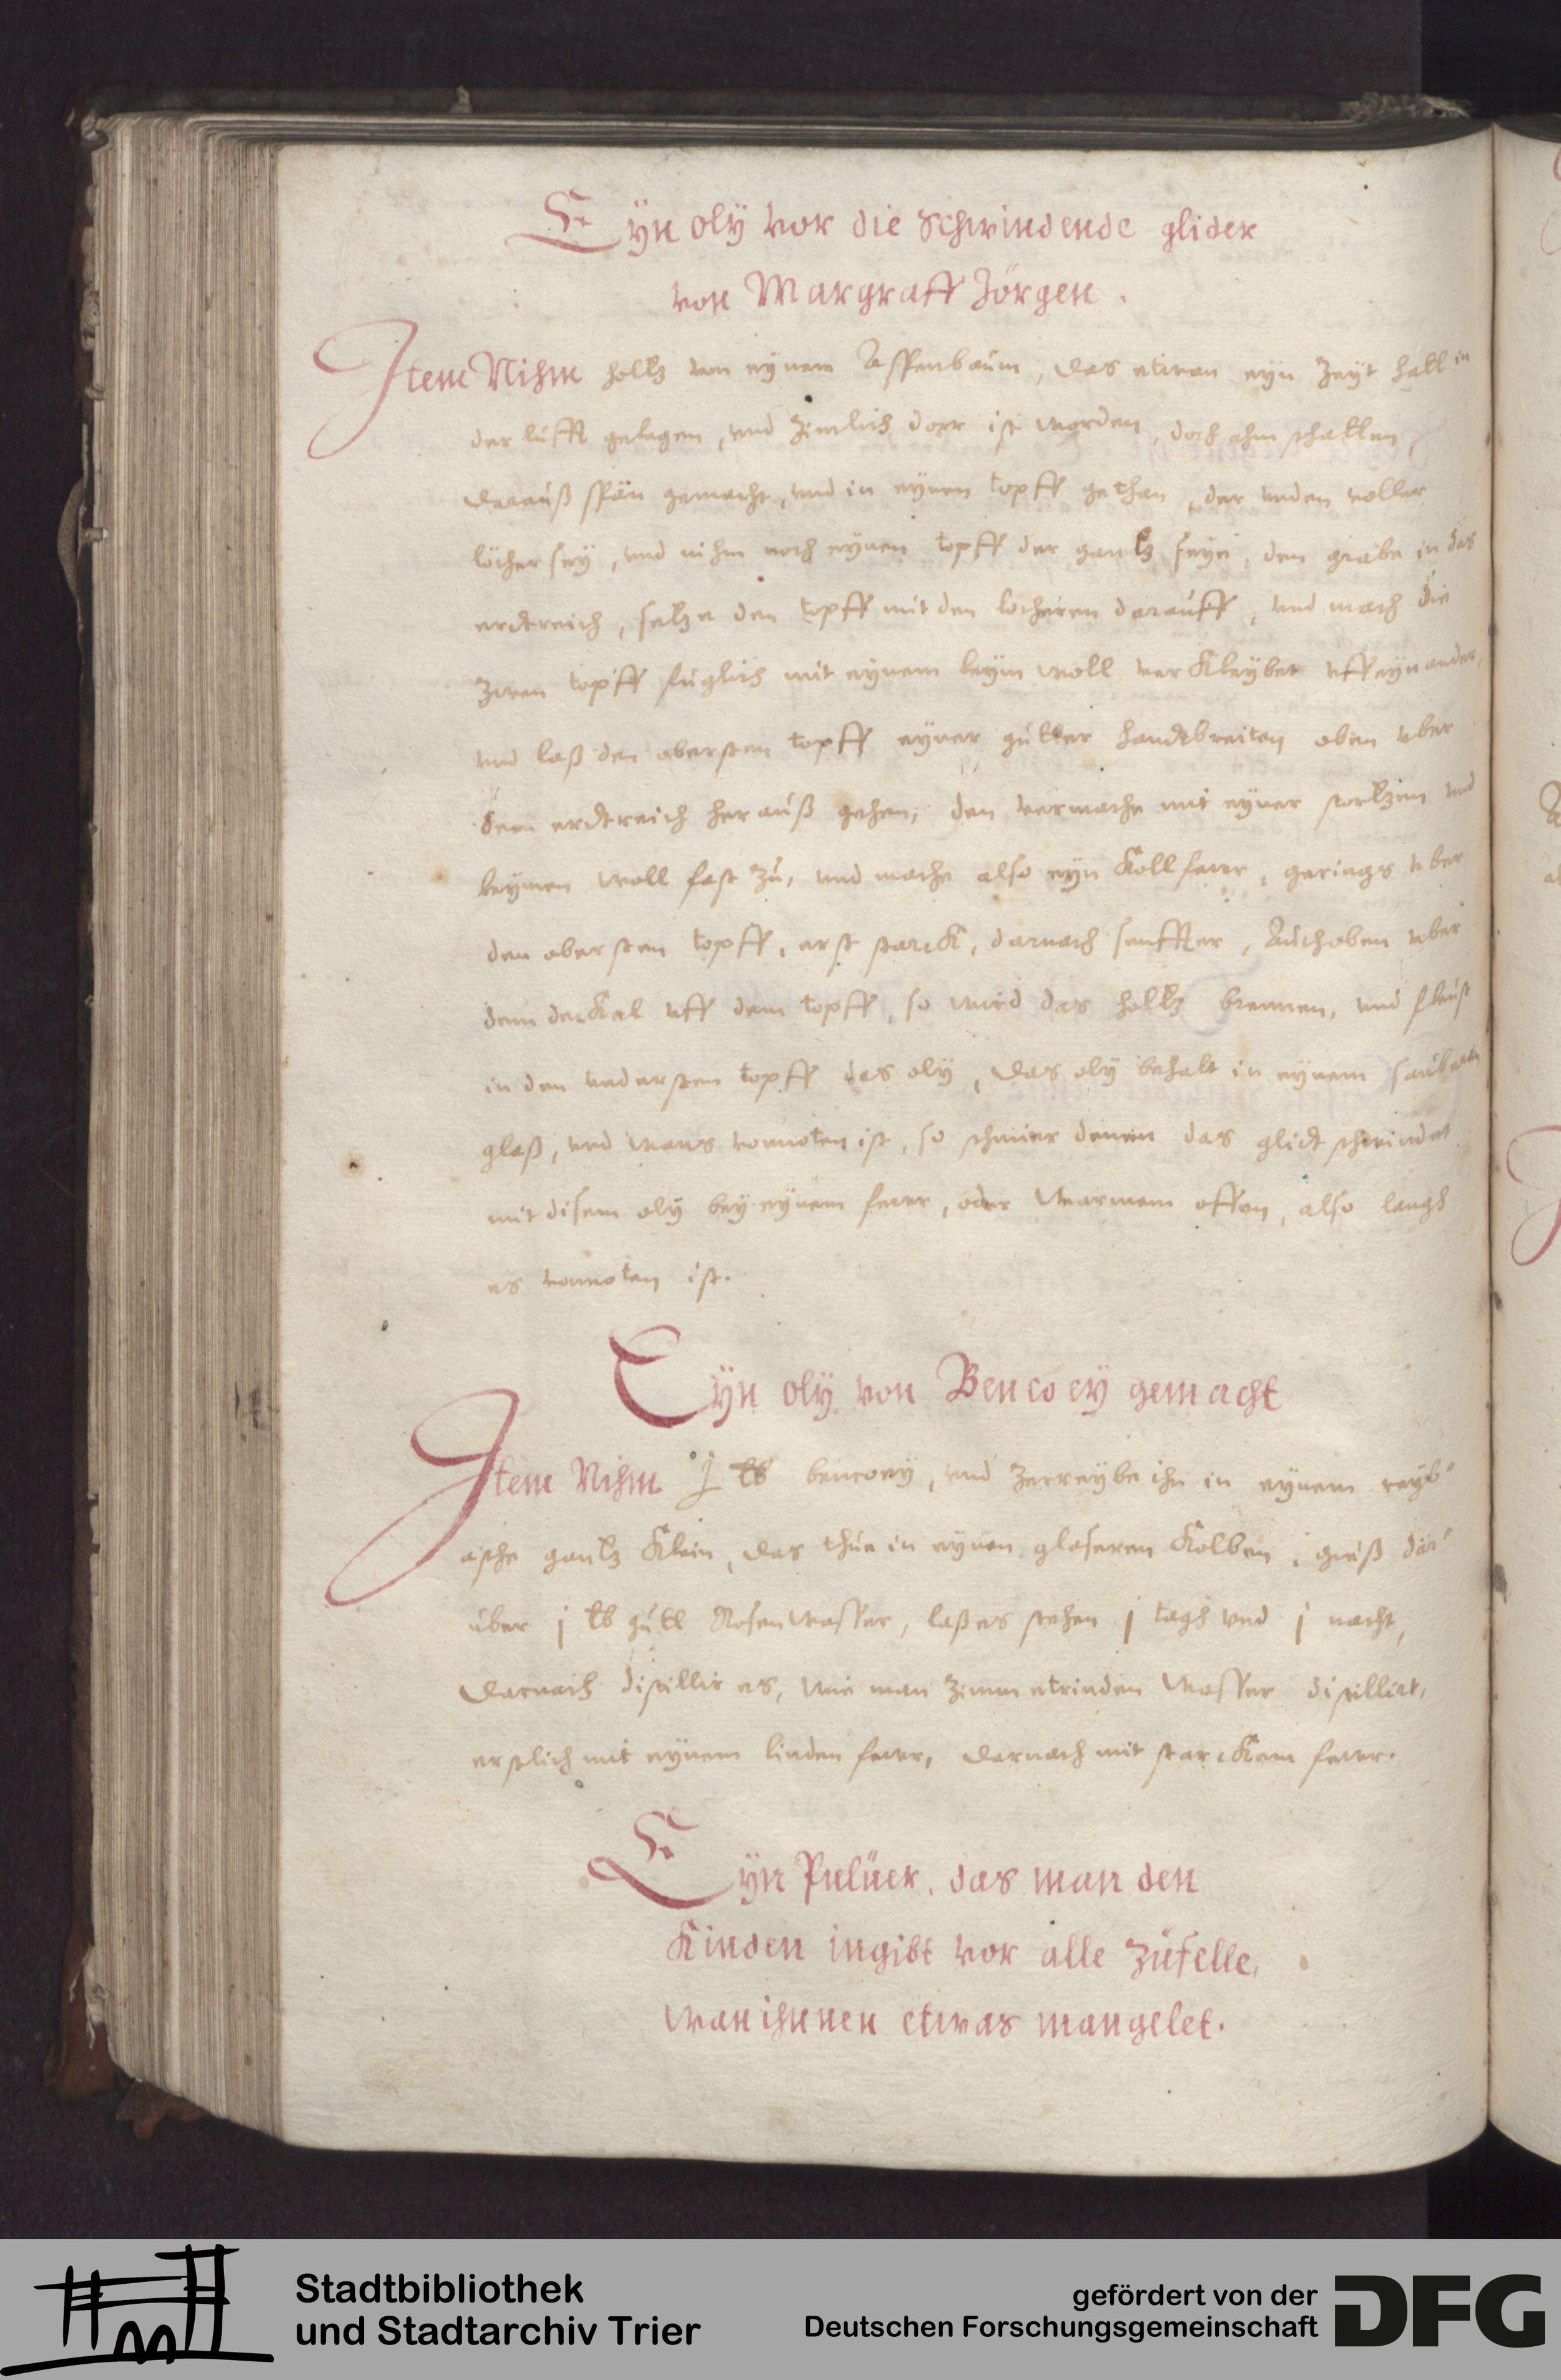 Eÿn olÿ vor die schwindende glider
von Margraff Jörgen.
Item Nihm holtz von eynem Aspenbaum, das etwan eyn Zeyt hatt in
der lufft gelegen, und Zimlich dorr ist worden, doch ahm schatten,
darauß spän gemacht, und in eynen topff gethan, der unden voller
löcher seÿ, und nihm noch eynen topff der gantz seye, den grabe in das
erdtreich, setze den topff mit den locheren darauff, und mach die
Zwen topff fuglich mit eynem leym woll verkleybet uff eynander,
und laß den obersten topff eyner gutter handtbreiten oben uber
dem erdtreich herauß gehen, den vermache mit eyner stortzen und
leymen woll fast Zu, und mache also eyn Kollfewr, gerings uber
den obersten topff, erst starck, darnach senffter, Auch oben uber
dem deckel uff dem topff, so wird das holtz brennen, und fleust
in den understen topff das oly, Das oly behalt in eynem saubern
glaß, und wans vonnoten ist, so schmier denen das glidt schwindet
mit disem oly bey eynem fewer, oder warmem offen, also langh
es vonnoten ist.
Eÿn olÿ von Bencoey gemacht
Item Nihm j ℔ bencoey, und Zerreybe ihn in eynem reyb
asche gantz Klein, das thue in eynen glaseren Kolben, gieß dar
uber j ℔ gutt Rosenwasser, laß es stehen j tagh und j nacht,
Darnach distillir es, wie man Zimmetrinden wasser distillirt,
erstlich mit eynem linden fewr, darnach mit starckem fewr.
Eÿn Puluer, das man den
Kinden ingibt vor alle Zufelle,
wan ihnnen etwas mangelet.
Stadtbibliothek
und Stadtarchiv Trier
gefördert von der
Deutschen Forschungsgemeinschaft
DFG